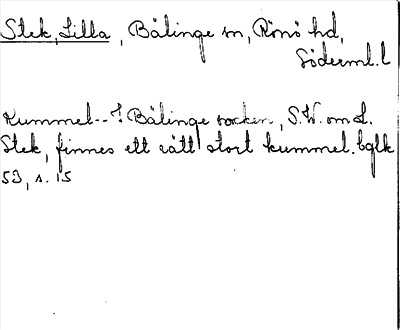 Stek, Lilla, Bälinge sn, Rönö hd,
Söderml. l
Kummel--? Bälinge socken, S.W. om L.
Stek, finnes ett rätt stort kummel. bglk
53, s. 15